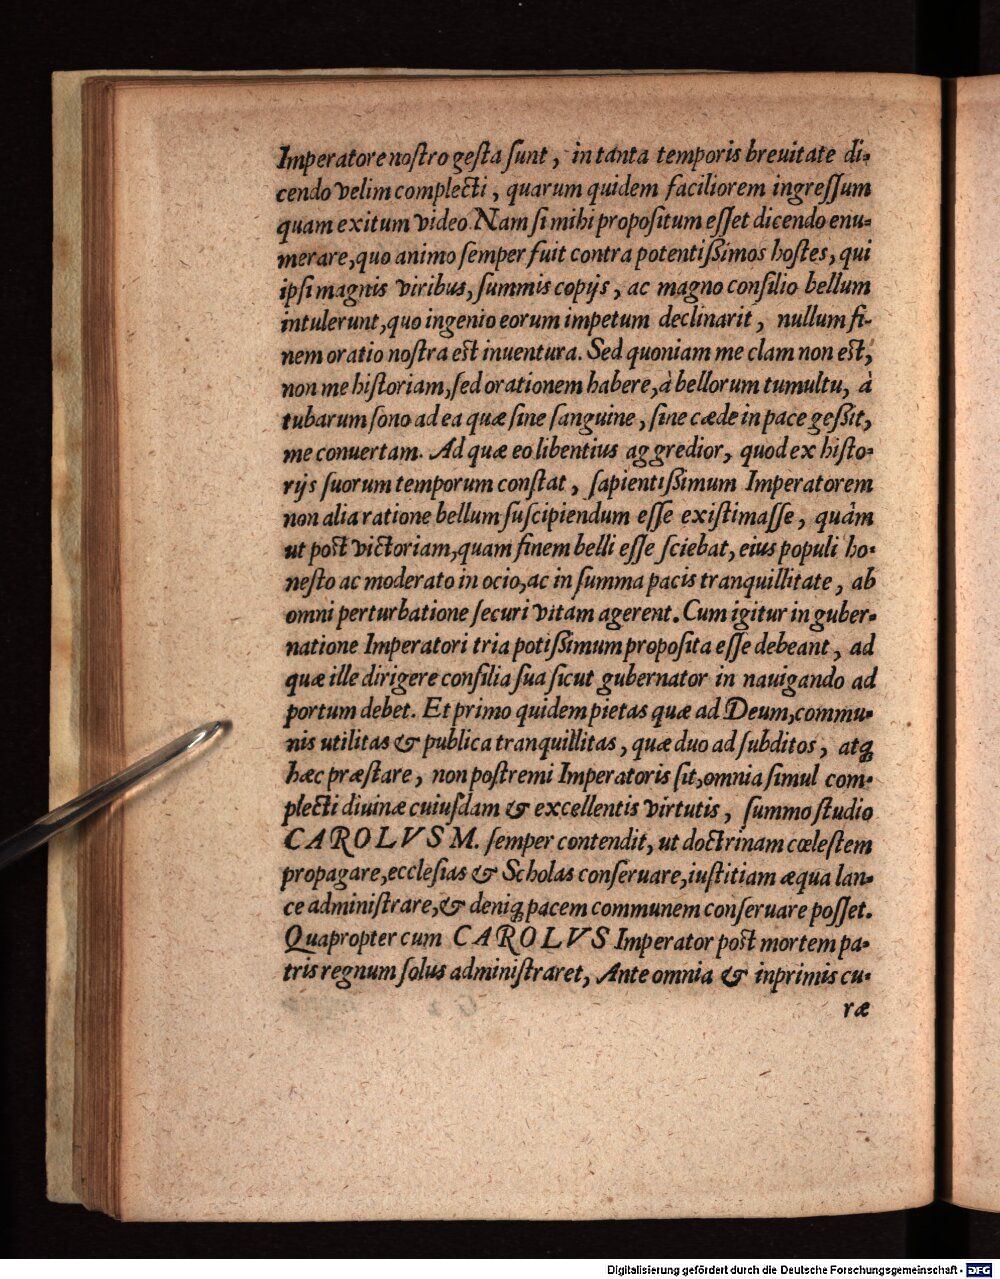 Imperatore noſtro geſta ſunt, in tanta temporis breuitate di-
cendo velim complecti, quarum quidem faciliorem ingreſſum
quam exitum video. Nam ſi mihi propoſitum eſſet dicendo enu-
merare, quo animo ſemper fuit contra potentiſsimos hoſtes, qui
ipſi magnis viribus, ſummis copijs, ac magno conſilio bellum
intulerunt, quo ingenio eorum impetum declinarit, nullum fi-
nem oratio noſtra eſt inuentura. Sed quoniam me clam non eſt,
non me hiſtoriam, ſed orationem habere, à bellorum tumultu, à
tubarum ſono ad ea quæ ſine ſanguine, ſine cæde in pace geſsit,
me conuertam. Ad quæ eo libentius aggredior, quod ex hiſto-
rijs ſuorum temporum conſtat, ſapientiſsimum Imperatorem
non alia ratione bellum ſuſcipiendum eſſe exiſtimaſſe, quàm
ut poſt victoriam, quam finem belli eſſe ſciebat, eius populi ho-
neſto ac moderato in ocio, ac in ſumma pacis tranquillitate, ab
omni perturbatione ſecuri vitam agerent. Cum igitur in guber-
natione Imperatori tria potiſsimum propoſita eſſe debeant, ad
quæ ille dirigere conſilia ſua ſicut gubernator in nauigando ad
portum debet. Et primo quidem pietas quæ ad Deum, commu-
nis utilitas & publica tranquillitas, quæ duo ad ſubditos, atq́
hæc præſtare, non poſtremi Imperatoris ſit, omnia ſimul com-
plecti diuinæ cuiuſdam & excellentis virtutis, ſummo ſtudio
CAROLVS M. ſemper contendit, ut doctrinam cœleſtem
propagare, eccleſias & Scholas conſeruare, iuſtitiam æqua lan-
ce adminiſtrare, & deniq́ pacem communem conſeruare poſſet.
Quapropter cum CAROLVS Imperator poſt mortem pa-
tris regnum ſolus adminiſtraret, Ante omnia & inprimis cu-
ræ
Digitalisierung gefördert durch die Deutsche Forschungsgemeinschaft - DFG